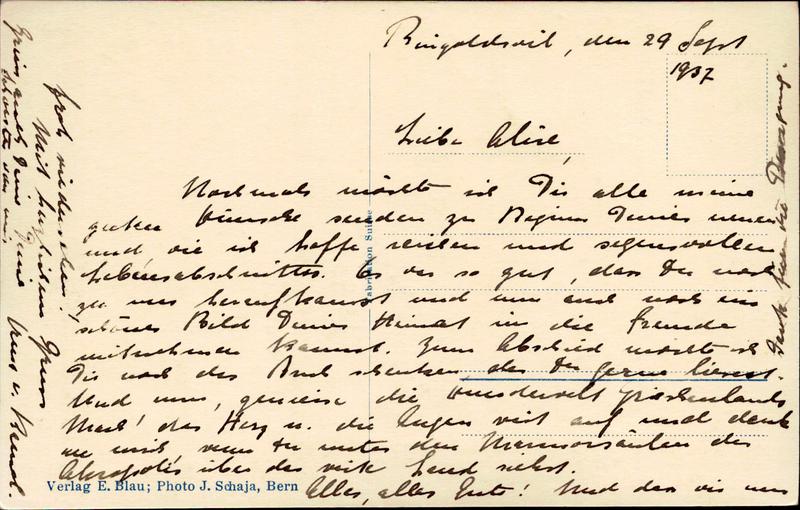 Ringoldswil, den 29 Sept
1937
Liebe Alice,
Nochmals möchte ich Dir alle meine
guten Wünsche senden zu Beginn Deines neuen
und wie ich hoffe reichen und segensvollen
Lebensabschnittes. Es war so gut, dass Du noch
zu uns heraufkamst und nun auch noch ein
schönes Bild Deiner Heimat in die Fremde
mitnehmen kannst. Zum Abschied möchte ich
Dir noch das Buch schenken das Du gerne liesest.
Und nun, geniesse die Wunderwelt Griechenlands
Mach' das Herz u. die Augen weit auf und denk
an mich wenn Du unter den Marmorsäulen der
Akropolis über das weite Land siehst.
Alles, alles Gute! Und dass wir uns
froh wiedersehen!
Mit herzlichem Gruss
Deine
Grüsse auch Deine
Schwester von mir.
Dank für die
Fabrikation Suisse
Verlag E. Blau; Photo J. Schaja, Bern